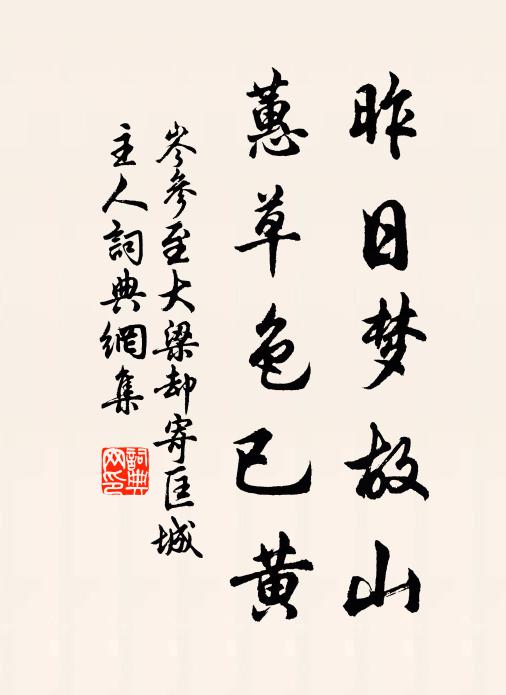 昨日梦故山
蕙草色已黄
岑参至大梁却寄匡城
主人詞典網集
詞典网印